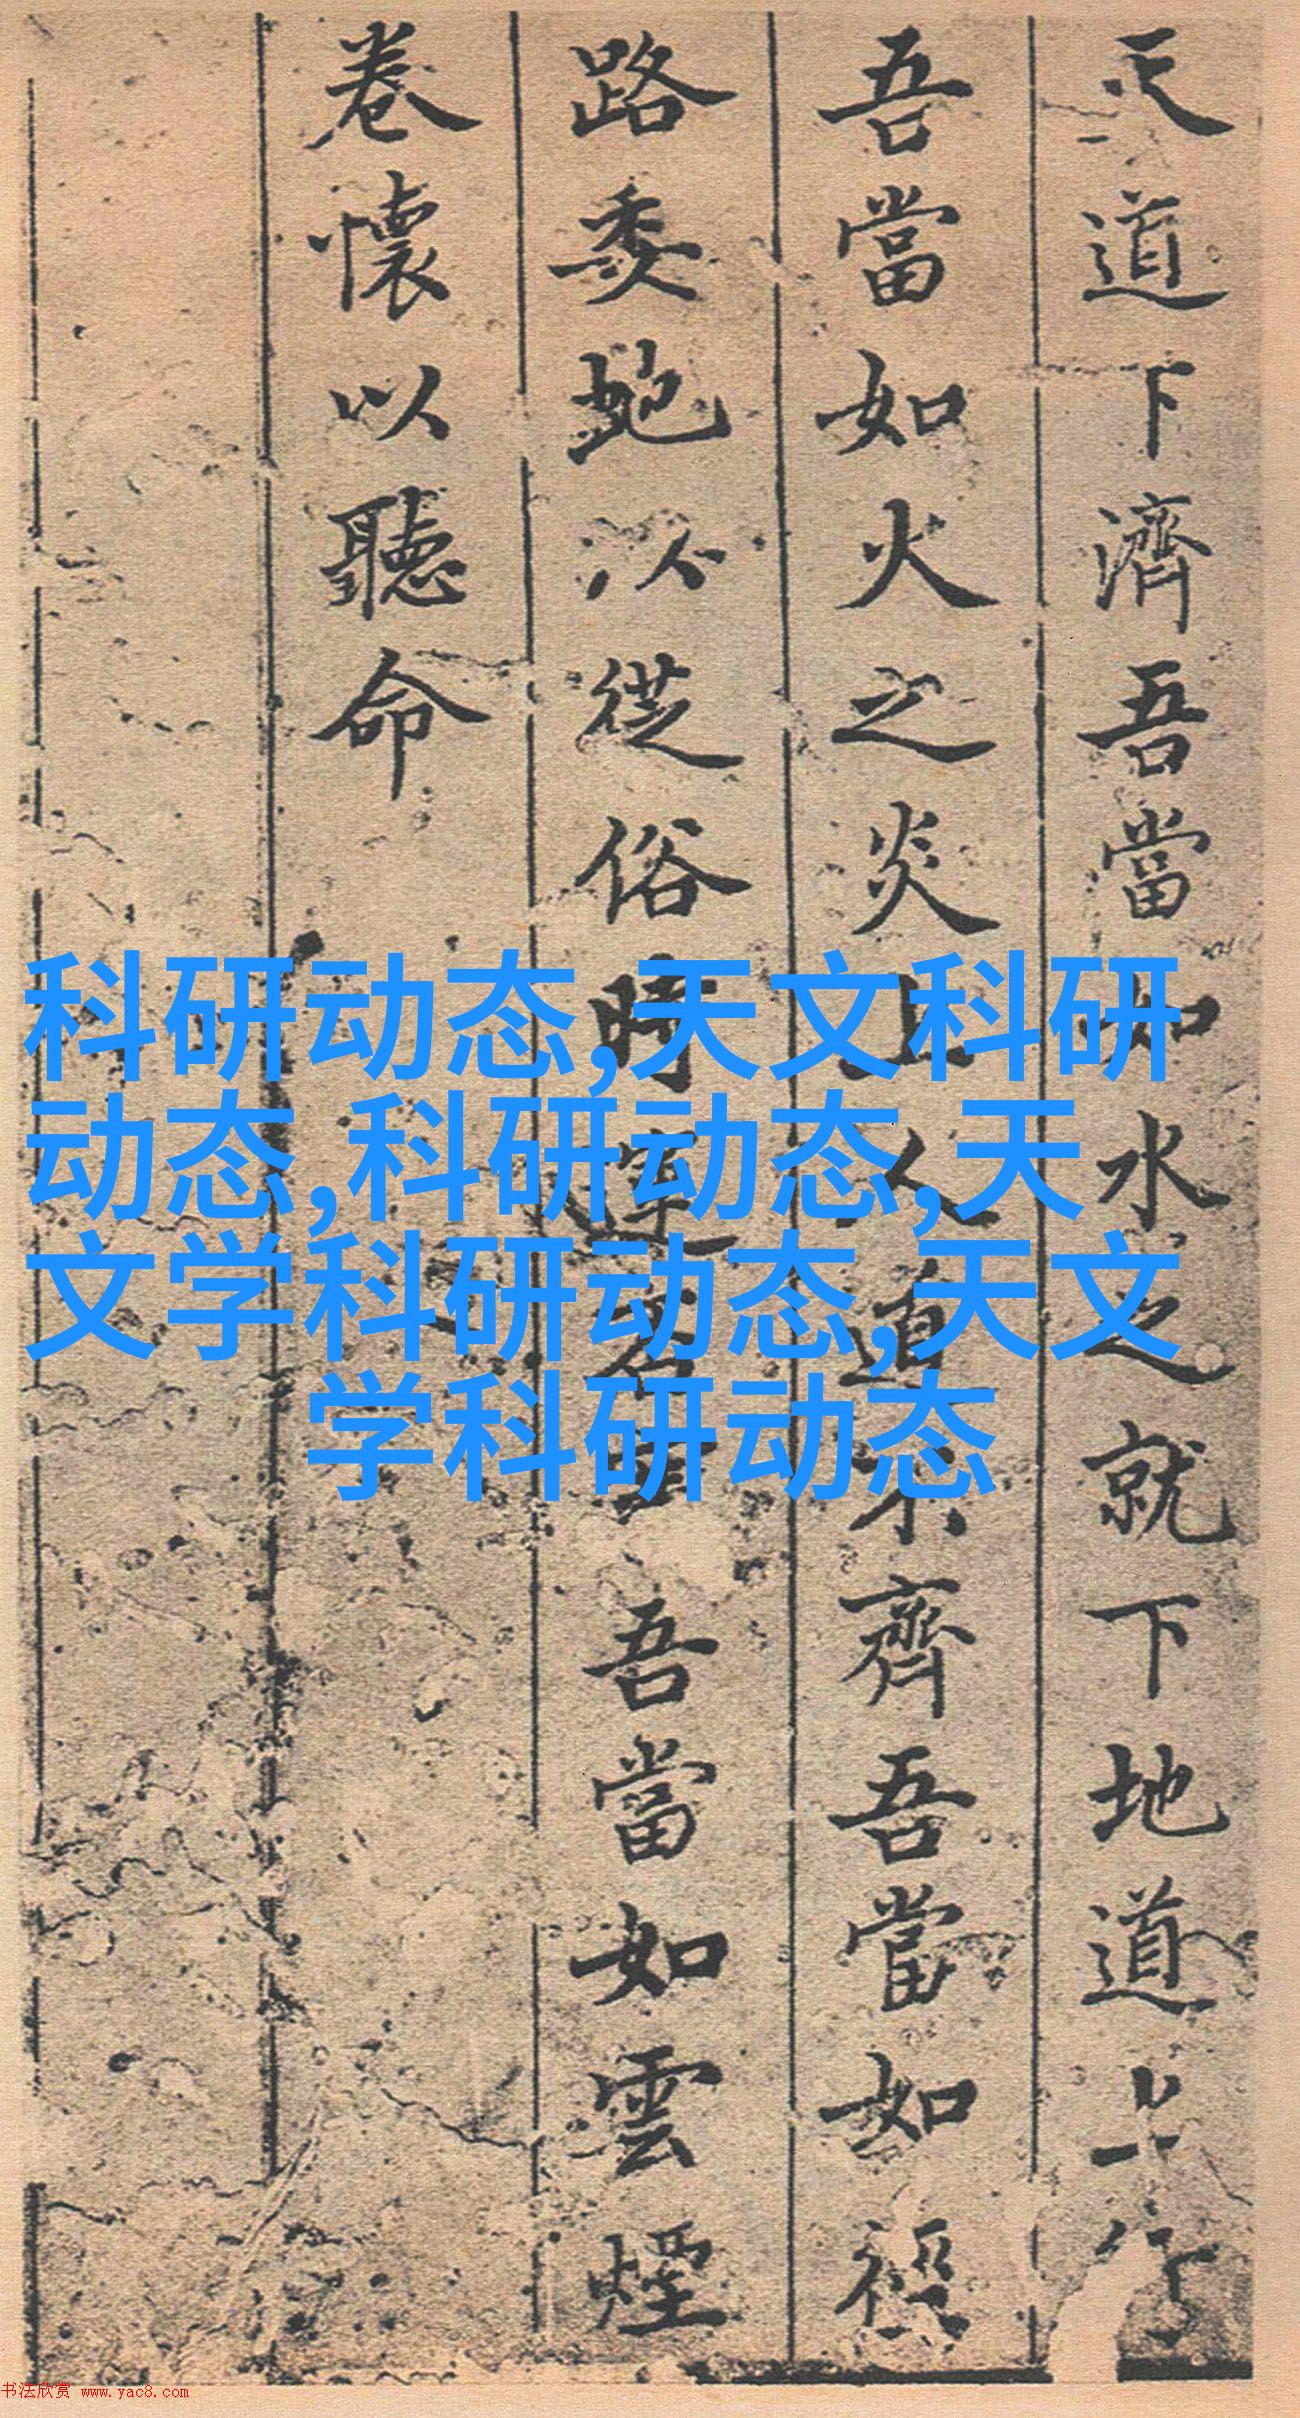 天道下濟吾當如水之就下地道上行
吾當如火之炎上人道不齊吾當如
路委蛇以從俗時違吾當如雲煙
卷懷以聽命
科研动态,天文科研
动态,科研动态,天
文学科研动态,天文
学科研动态
书法欣赏 www.yac8.com